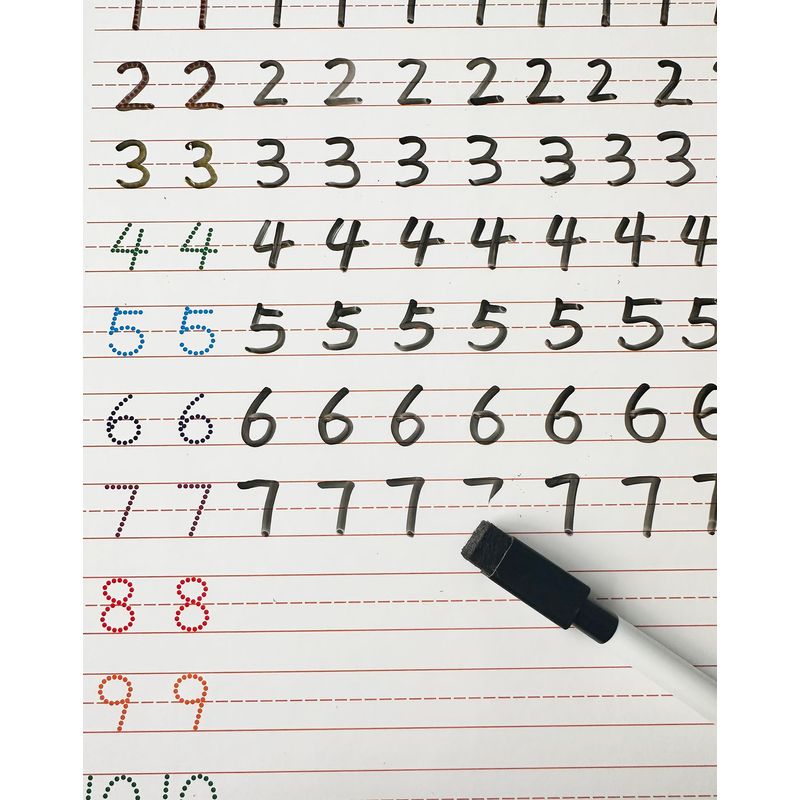 1 1 1 1 1 1 1 1 1 1
2 2 2 2 2 2 2 2 2
3 3 3 3 3 3 3 3 3
4 4 4 4 4 4 4 4 4
5 5 5 5 5 5 5 5 5
6 6 6 6 6 6 6 6 6
7 7 7 7 7 7 7 7 7
8 8
9 9
10 10